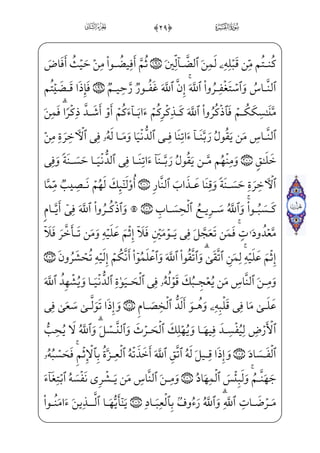 سُورَةُ البَقَرَةِ ﴿٢٩﴾ الجُزْءُ الثَّانِي
كُنتُم مِّن قَبْلِهِۦ لَمِنَ ٱلضَّآلِّينَ ١٩٨ ثُمَّ أَفِيضُوا۟ مِنْ حَيْثُ أَفَاضَ
ٱلنَّاسُ وَٱسْتَغْفِرُوا۟ ٱللَّهَ ۚ إِنَّ ٱللَّهَ غَفُورٌ رَّحِيمٌ ١٩٩ فَإِذَا قَضَيْتُم
مَّنَـٰسِكَكُمْ فَٱذْكُرُوا۟ ٱللَّهَ كَذِكْرِكُمْ ءَابَآءَكُمْ أَوْ أَشَدَّ ذِكْرًا ۗ فَمِنَ
ٱلنَّاسِ مَن يَقُولُ رَبَّنَآ ءَاتِنَا فِى ٱلدُّنْيَا وَمَا لَهُۥ فِى ٱلْـَٔاخِرَةِ مِنْ
خَلَـٰقٍ ٢٠٠ وَمِنْهُم مَّن يَقُولُ رَبَّنَآ ءَاتِنَا فِى ٱلدُّنْيَا حَسَنَةً وَفِى
ٱلْـَٔاخِرَةِ حَسَنَةً وَقِنَا عَذَابَ ٱلنَّارِ ٢٠١ أُو۟لَـٰٓئِكَ لَهُمْ نَصِيبٌ مِّمَّا
كَسَبُوا۟ ۚ وَٱللَّهُ سَرِيعُ ٱلْحِسَابِ ٢٠٢ ۞ وَٱذْكُرُوا۟ ٱللَّهَ فِىٓ أَيَّامٍ
مَّعْدُودَٰتٍ ۚ فَمَن تَعَجَّلَ فِى يَوْمَيْنِ فَلَآ إِثْمَ عَلَيْهِ وَمَن تَأَخَّرَ فَلَآ
إِثْمَ عَلَيْهِ ۚ لِمَنِ ٱتَّقَىٰ ۗ وَٱتَّقُوا۟ ٱللَّهَ وَٱعْلَمُوٓا۟ أَنَّكُمْ إِلَيْهِ تُحْشَرُونَ ٢٠٣
وَمِنَ ٱلنَّاسِ مَن يُعْجِبُكَ قَوْلُهُۥ فِى ٱلْحَيَوٰةِ ٱلدُّنْيَا وَيُشْهِدُ ٱللَّهَ
عَلَىٰ مَا فِى قَلْبِهِۦ وَهُوَ أَلَدُّ ٱلْخِصَامِ ٢٠٤ وَإِذَا تَوَلَّىٰ سَعَىٰ فِى
ٱلْأَرْضِ لِيُفْسِدَ فِيهَا وَيُهْلِكَ ٱلْحَرْثَ وَٱلنَّسْلَ ۗ وَٱللَّهُ لَا يُحِبُّ
ٱلْفَسَادَ ٢٠٥ وَإِذَا قِيلَ لَهُ ٱتَّقِ ٱللَّهَ أَخَذَتْهُ ٱلْعِزَّةُ بِٱلْإِثْمِ ۚ فَحَسْبُهُۥ
جَهَنَّمُ ۚ وَلَبِئْسَ ٱلْمِهَادُ ٢٠٦ وَمِنَ ٱلنَّاسِ مَن يَشْرِى نَفْسَهُ ٱبْتِغَآءَ
مَرْضَاتِ ٱللَّهِ ۗ وَٱللَّهُ رَءُوفٌۢ بِٱلْعِبَادِ ٢٠٧ يَـٰٓأَيُّهَا ٱلَّذِينَ ءَامَنُوا۟